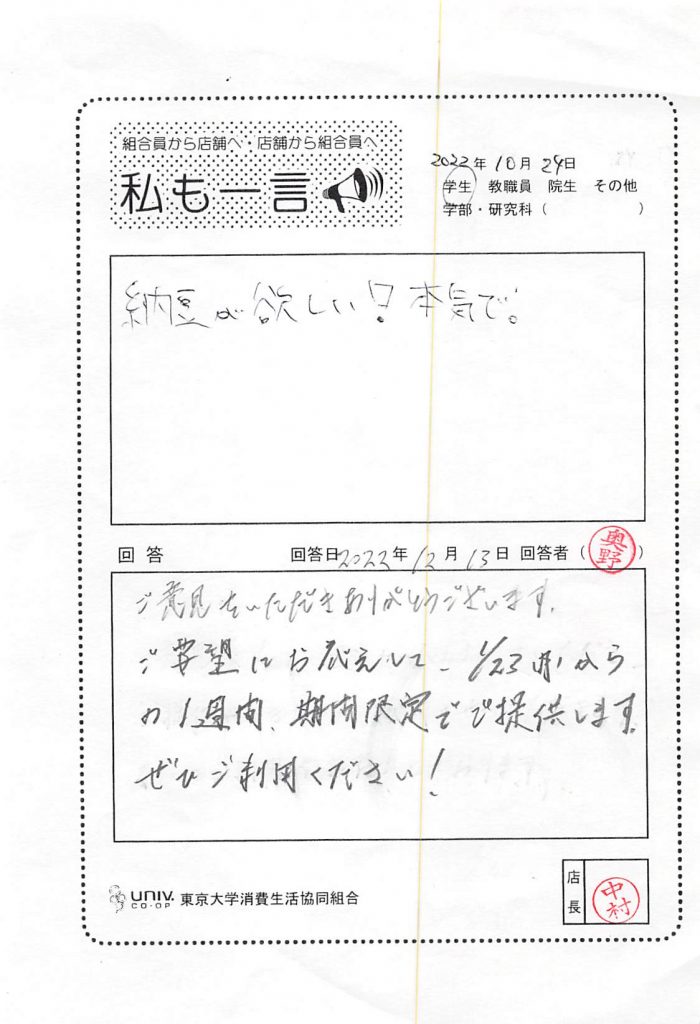 組合員から店舗へ・店舗から組合員へ
私も一言
2022年10月24日
学生 教職員 院生 その他
学部・研究科（ ）
納豆が欲しい！本気で。
回答 回答日2022年12月13日 回答者（奥野）
ご意見をいただきありがとうございます。
ご要望にお応えして、1/23(月)から
の1週間、期間限定でご提供します。
ぜひご利用ください！
UNIV. CO-OP 東京大学消費生活協同組合
店長 中村